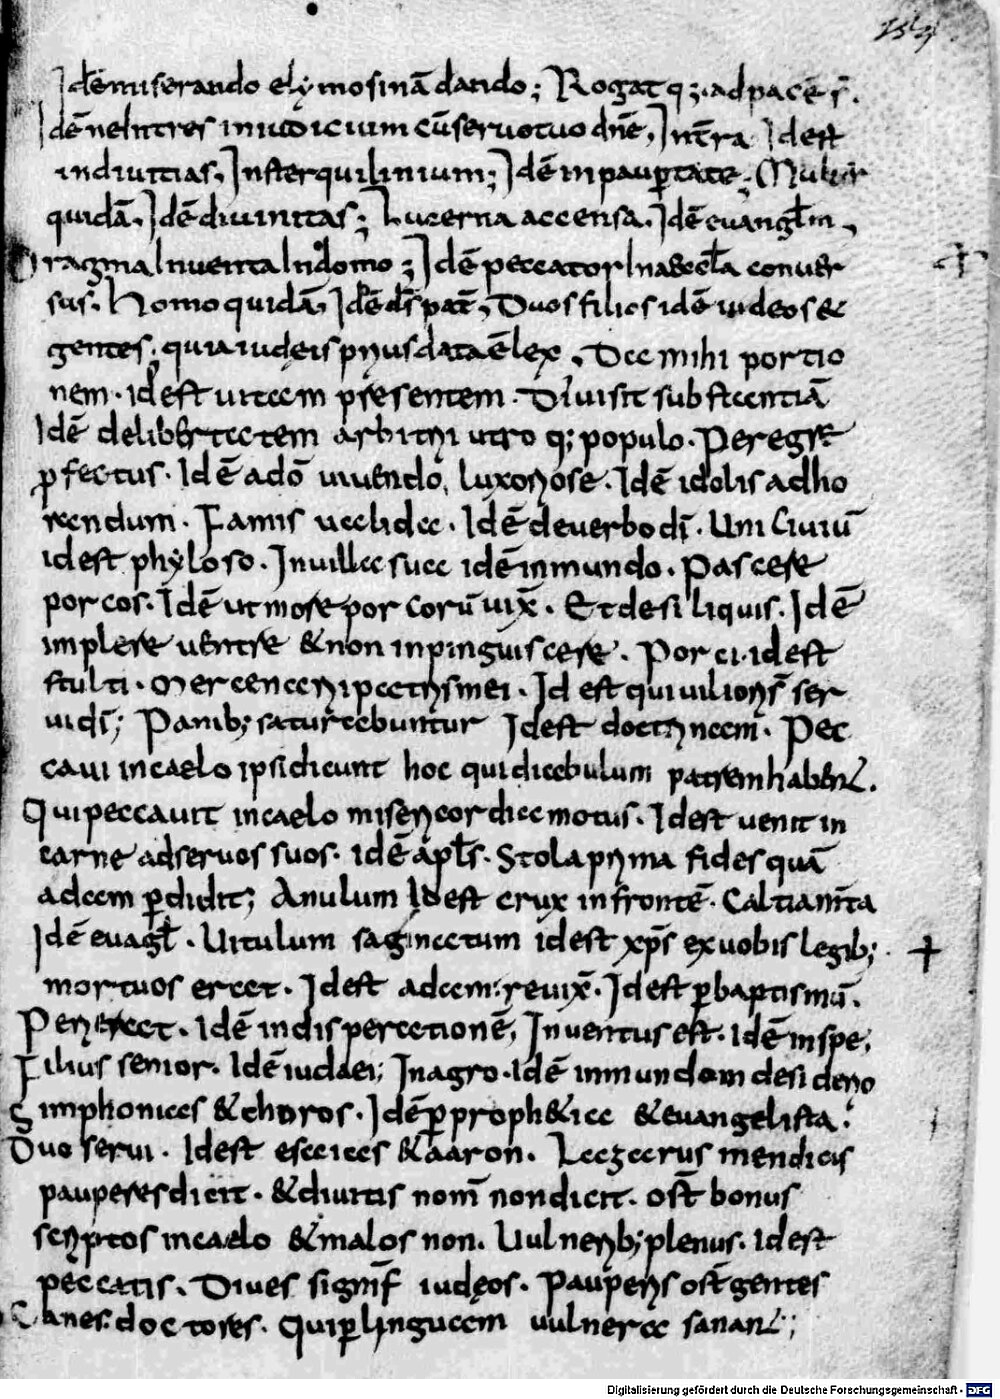 Idē miserando elymosinā dando; Rogat q; ad pacē
Idē ne intres in iudicium cū seruo tuo dn̄e, In Idest
in diuitias, In sterquilinium; Idē in paup̄tate; Mulier
quidā, Idē diuinitas; Lucerna accensa, Idē euangl̄m,
Dragma Inuenta In domo; Idē peccator In aeccl̄a conuer
sus. Homo quidā, Idē d̄s pat̄, Duos filios idē iudeos &
gentes, quia iudęis prius data ē lex, Da mihi portio
nem. idest uitam presentem. Diuisit substantiā
Idē de libertatem arbitrii utro q; populo. Peregre
p̄fectus. Idē a dō uiuendo, luxoriose. Idē idolis adho
randum. Famis ualida. Idē de uerbo dī. Uni Ciuiū
idest phyloso. In uilla sua idē in mundo. Pascere
porcos. Idē ut more porcorū uix̄. Et de siliquis. Idē
implere uentre & non inpinguiscere. Porci. idest
stulti. Mercennarii patris mei. Id est qui uilioris̄ ser
uidī; Panib; saturabuntur Idest doctrinam. Pec
caui in caelo ipsi dicunt hoc qui diabulum patrem haben̄.
Qui peccauit in caelo misericordia motus. Idest uenit in
carne ad seruos suos. idē apl̄s. Stola prima fides quā
adam p̄didit; Anulum Idest crux in frontē. Caltiam̄ta
Idē euagl̄. Uitulum saginatum idest xp̄s ex uobis legib;
mortuos erat. Idest adam. reuix̄. Idest p̄ baptismū.
Perierat. Idē in disperationē, Inuentus est. Idē in spe,
Filius senior. Idē iudaei; In agro. Idē in mundam desiderio
Simphonices & choros. Idē p̄ proph&ia & euangelista.
Duo serui. Idest esaias & aaron. Lazarus mendicis
pauperes dicit. & diuitis nom̄ non dicit. ost̄ bonus
scriptos in caelo & malos non. Uulnerib; plenus. Idest
peccatis. Diues signif̄ iudęos. Pauperis ost̄ gentes
Canes. doctores. Qui p̄ linguam uulnera sanan̄;